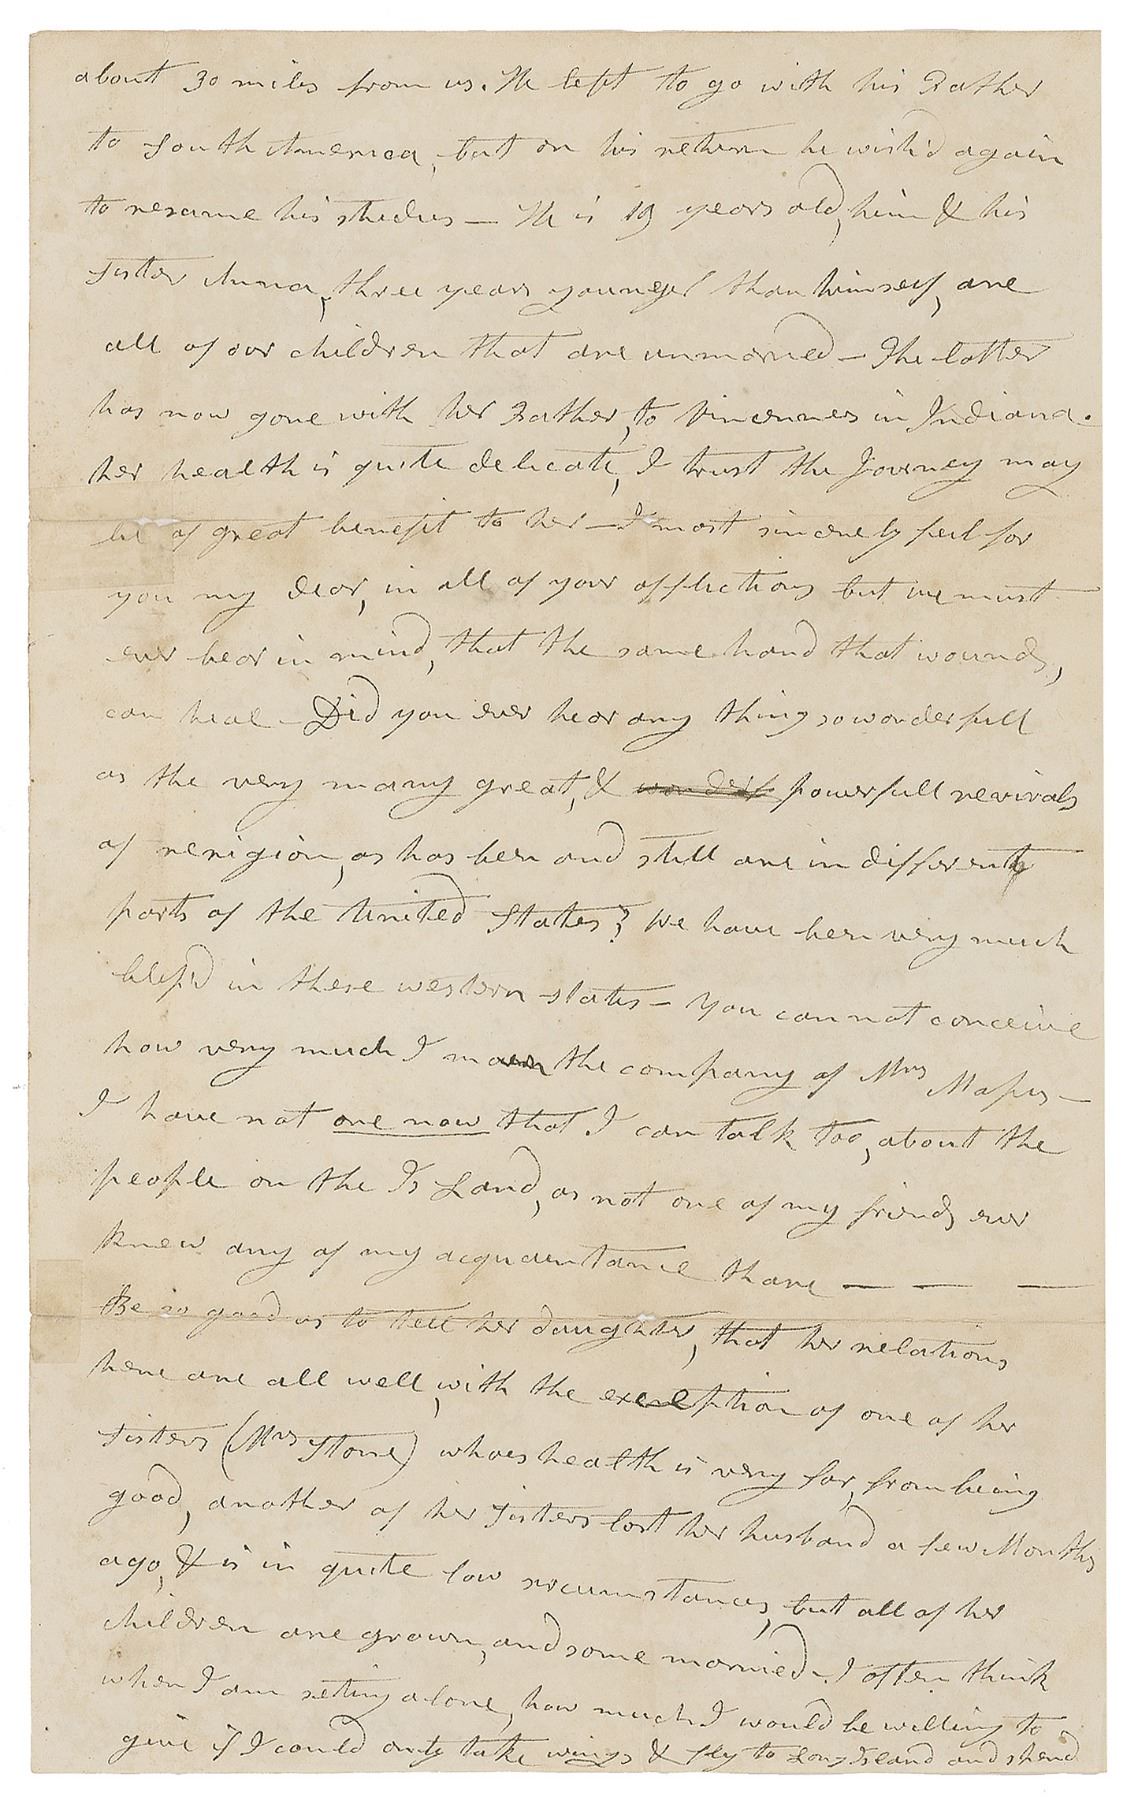 about 30 miles from us. He left to go with his Father
to South America, but on his return he wish'd again
to resume his studies — He is 19 years old, him & his
sister Anna, three years younger than himself, are
all of our children that are unmarried — The latter
has now gone with her Father, to Vincennes in Indiana.
her health is quite delicate, I trust the Journey may
be of great benefit to her — I most sincerely feel for
you my dear, in all of your afflictions but we must
ever bear in mind, that the same hand that wounds,
can heal — Did you ever hear any thing so wonderfull
as the very many great, & wonderf powerfull revivals
of religion, as has been and still are in different
parts of the United States? We have been very much
bless'd in these western states — You can not conceive
how very much I mourn the company of Mrs Mapes —
I have not one now that I can talk too, about the
people on the Is Land, as not one of my friends ever
knew any of my acquaintance thare — — —
Be so good as to tell her daughter, that her relations
here are all well, with the exception of one of her
sisters (Mrs Stone) whoes health is very far, from being
good, another of her sisters lost her husband a few Months
ago, & is in quite low sircumstances, but all of her
children are grown, and some married. I often think
when I am setting alone, how much I would be willing to
give if I could only take wings & fly to Long Island and spend